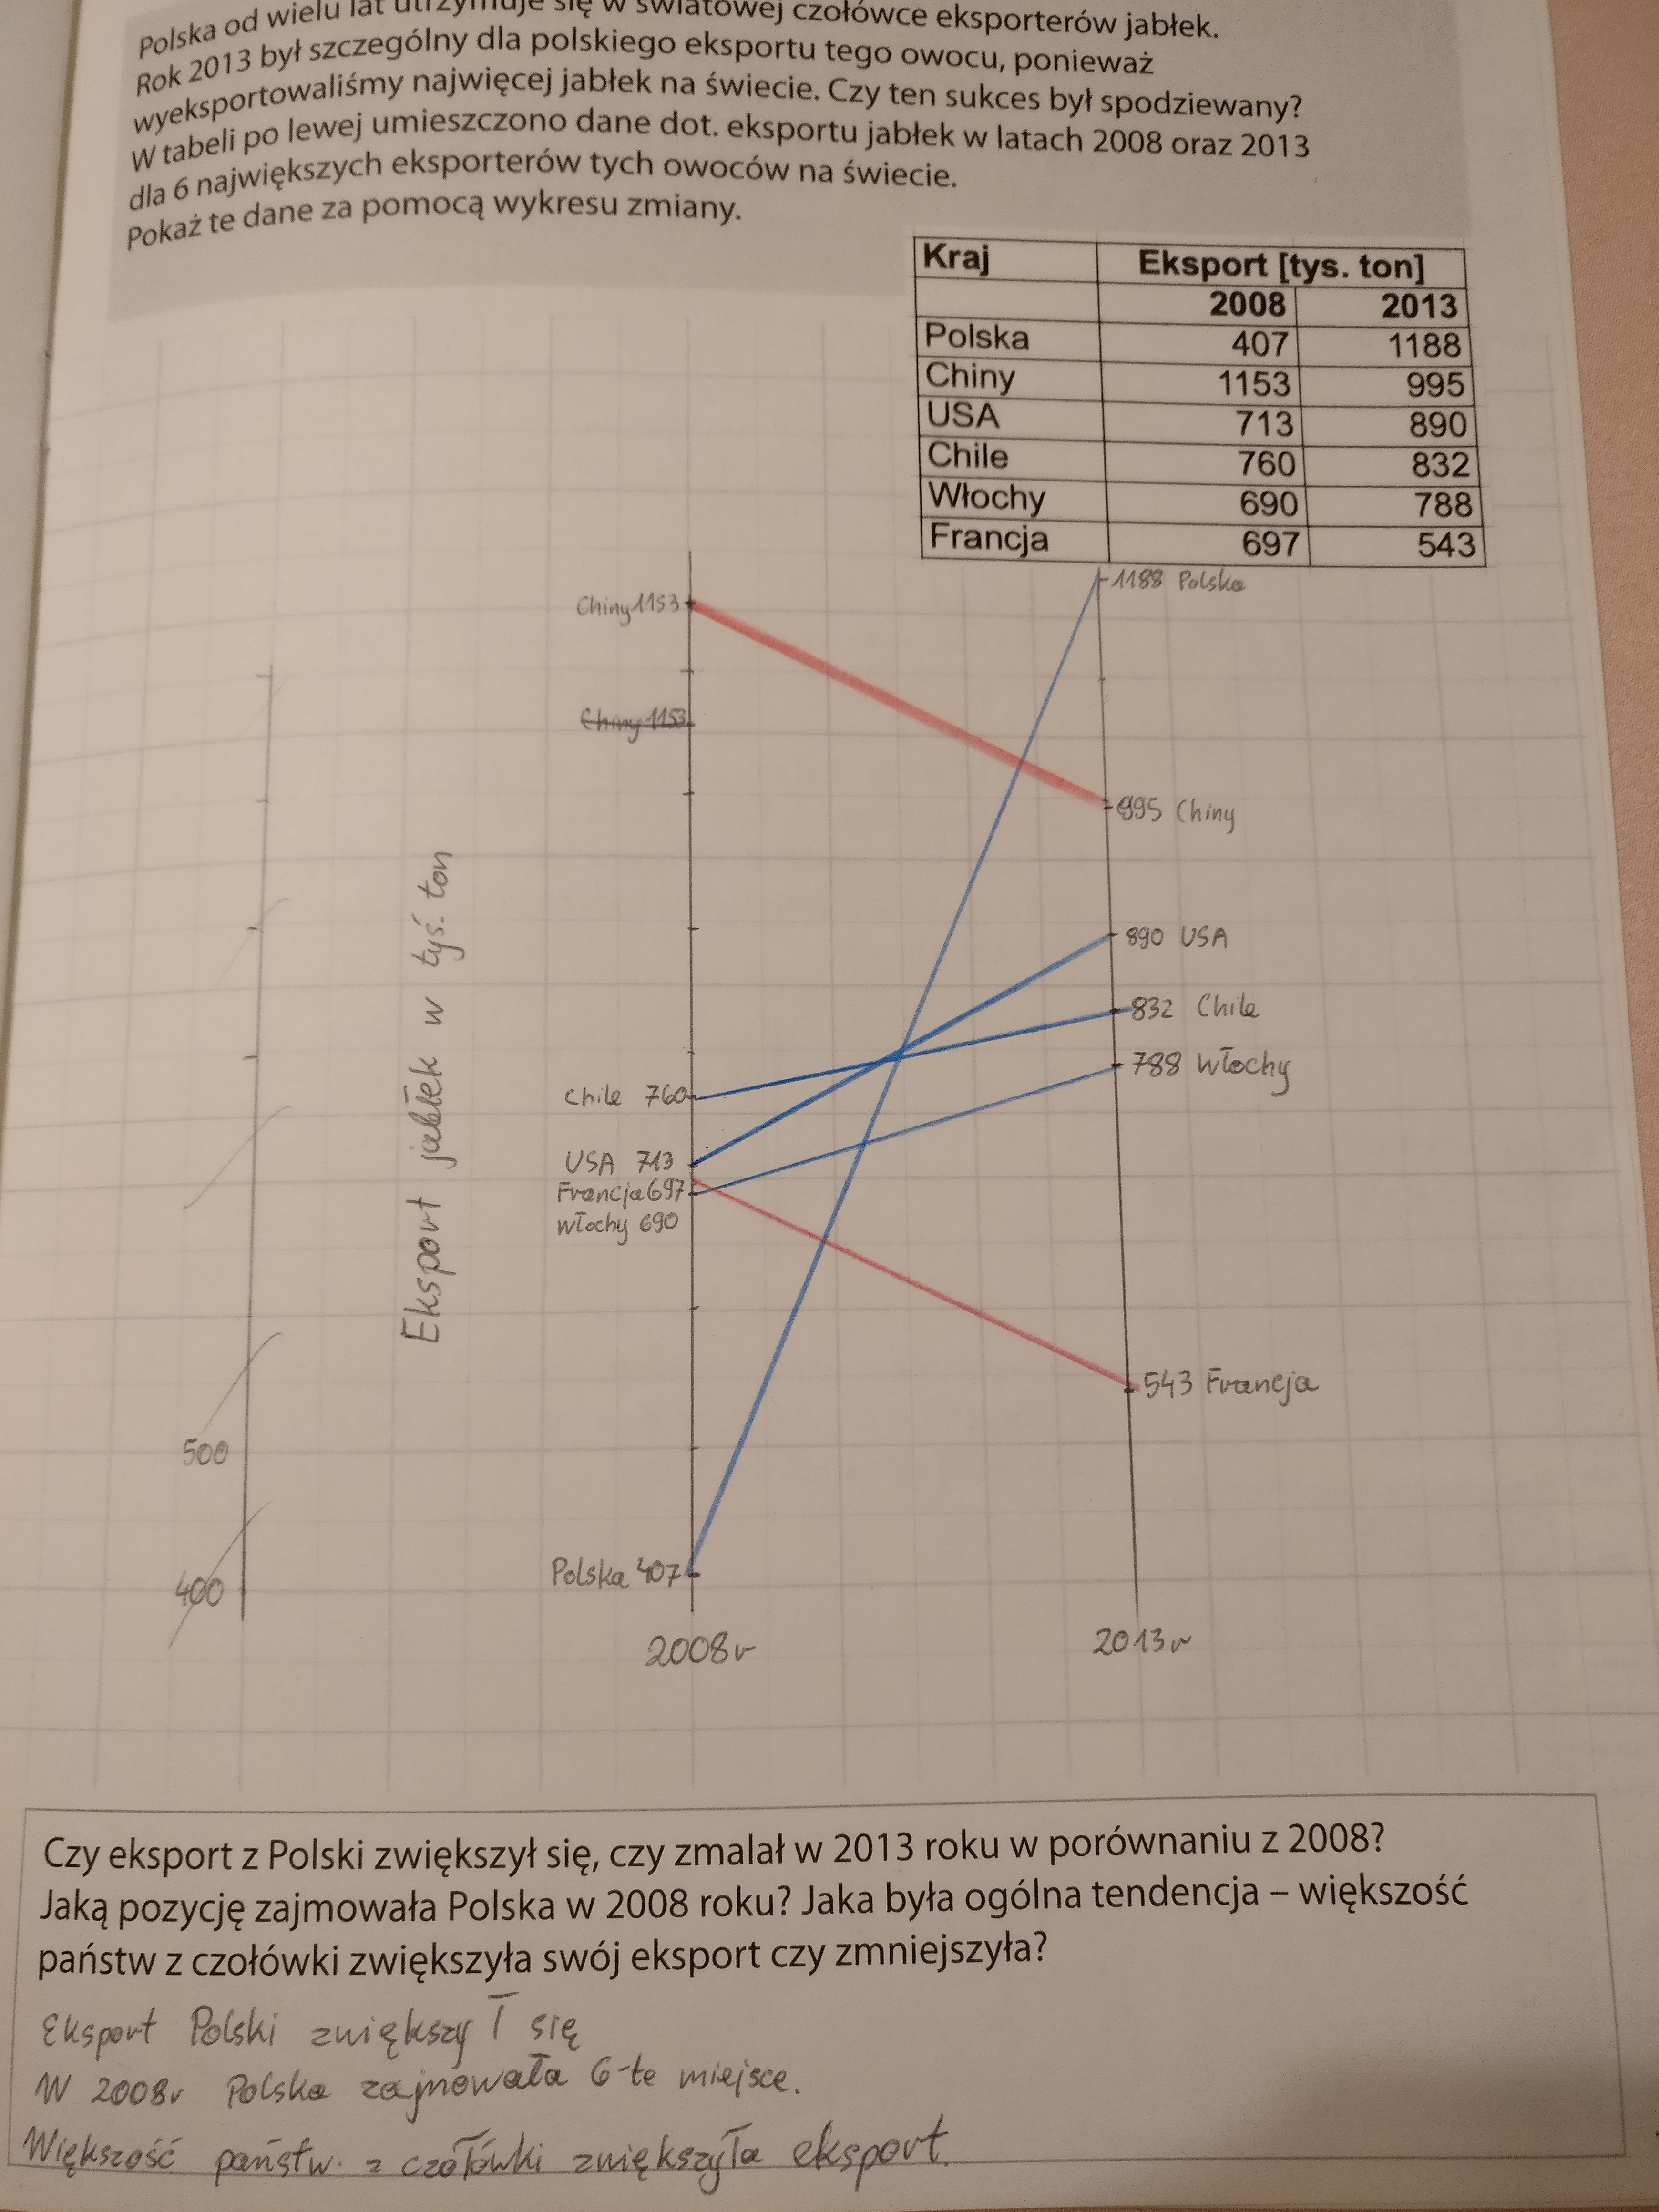 Polska od wielu lat utrzymuje się w światowej czołówce eksporterów jabłek.
Rok 2013 był szczególny dla polskiego eksportu tego owocu, ponieważ
wyeksportowaliśmy najwięcej jabłek na świecie. Czy ten sukces był spodziewany?
W tabeli po lewej umieszczono dane dot. eksportu jabłek w latach 2008 oraz 2013
dla 6 największych eksporterów tych owoców na świecie.
Pokaż te dane za pomocą wykresu zmiany.
Kraj Eksport [tys. ton]
2008 2013
Polska 407 1188
Chiny 1153 995
USA 713 890
Chile 760 832
Włochy 690 788
Francja 697 543
1188 Polska
Chiny 1153
Chiny 1153
995 Chiny
Eksport jabłek w tyś. ton
890 USA
832 Chile
788 Włochy
Chile 760
USA 713
Francja 697
Włochy 690
543 Francja
500
Polska 407
400
2008r 2013r
Czy eksport z Polski zwiększył się, czy zmalał w 2013 roku w porównaniu z 2008?
Jaką pozycję zajmowała Polska w 2008 roku? Jaka była ogólna tendencja – większość
państw z czołówki zwiększyła swój eksport czy zmniejszyła?
Eksport Polski zwiększył się
W 2008r Polska zajmowała 6-te miejsce.
Większość państw. z czołówki zwiększyła eksport.